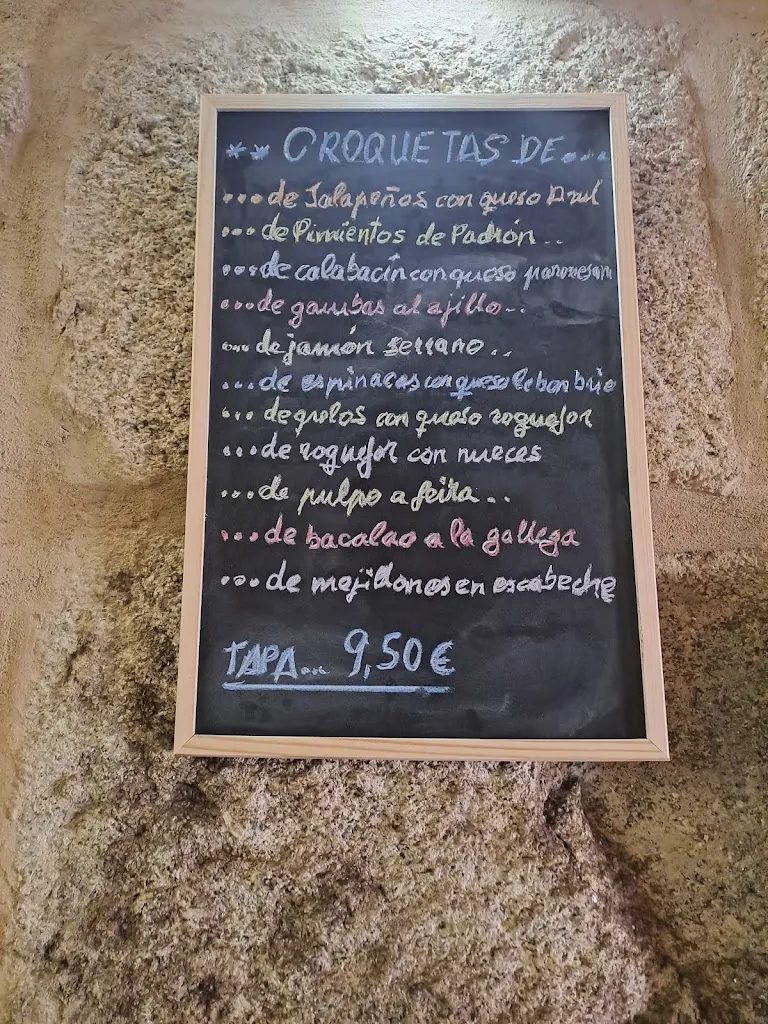 ** CROQUETAS DE....
...de Jalapeños con queso Azul
...de Pimientos de Padrón..
...de calabacín con queso parmesan
...de gambas al ajillo...
...de jamón serrano..
...de espinacas con queso lebonbrie
...de grelos con queso roquefor
...de roquefor con nueces
...de pulpo a feira...
...de bacalao a la gallega
...de mejillones en escabeche
TAPA... 9,50€